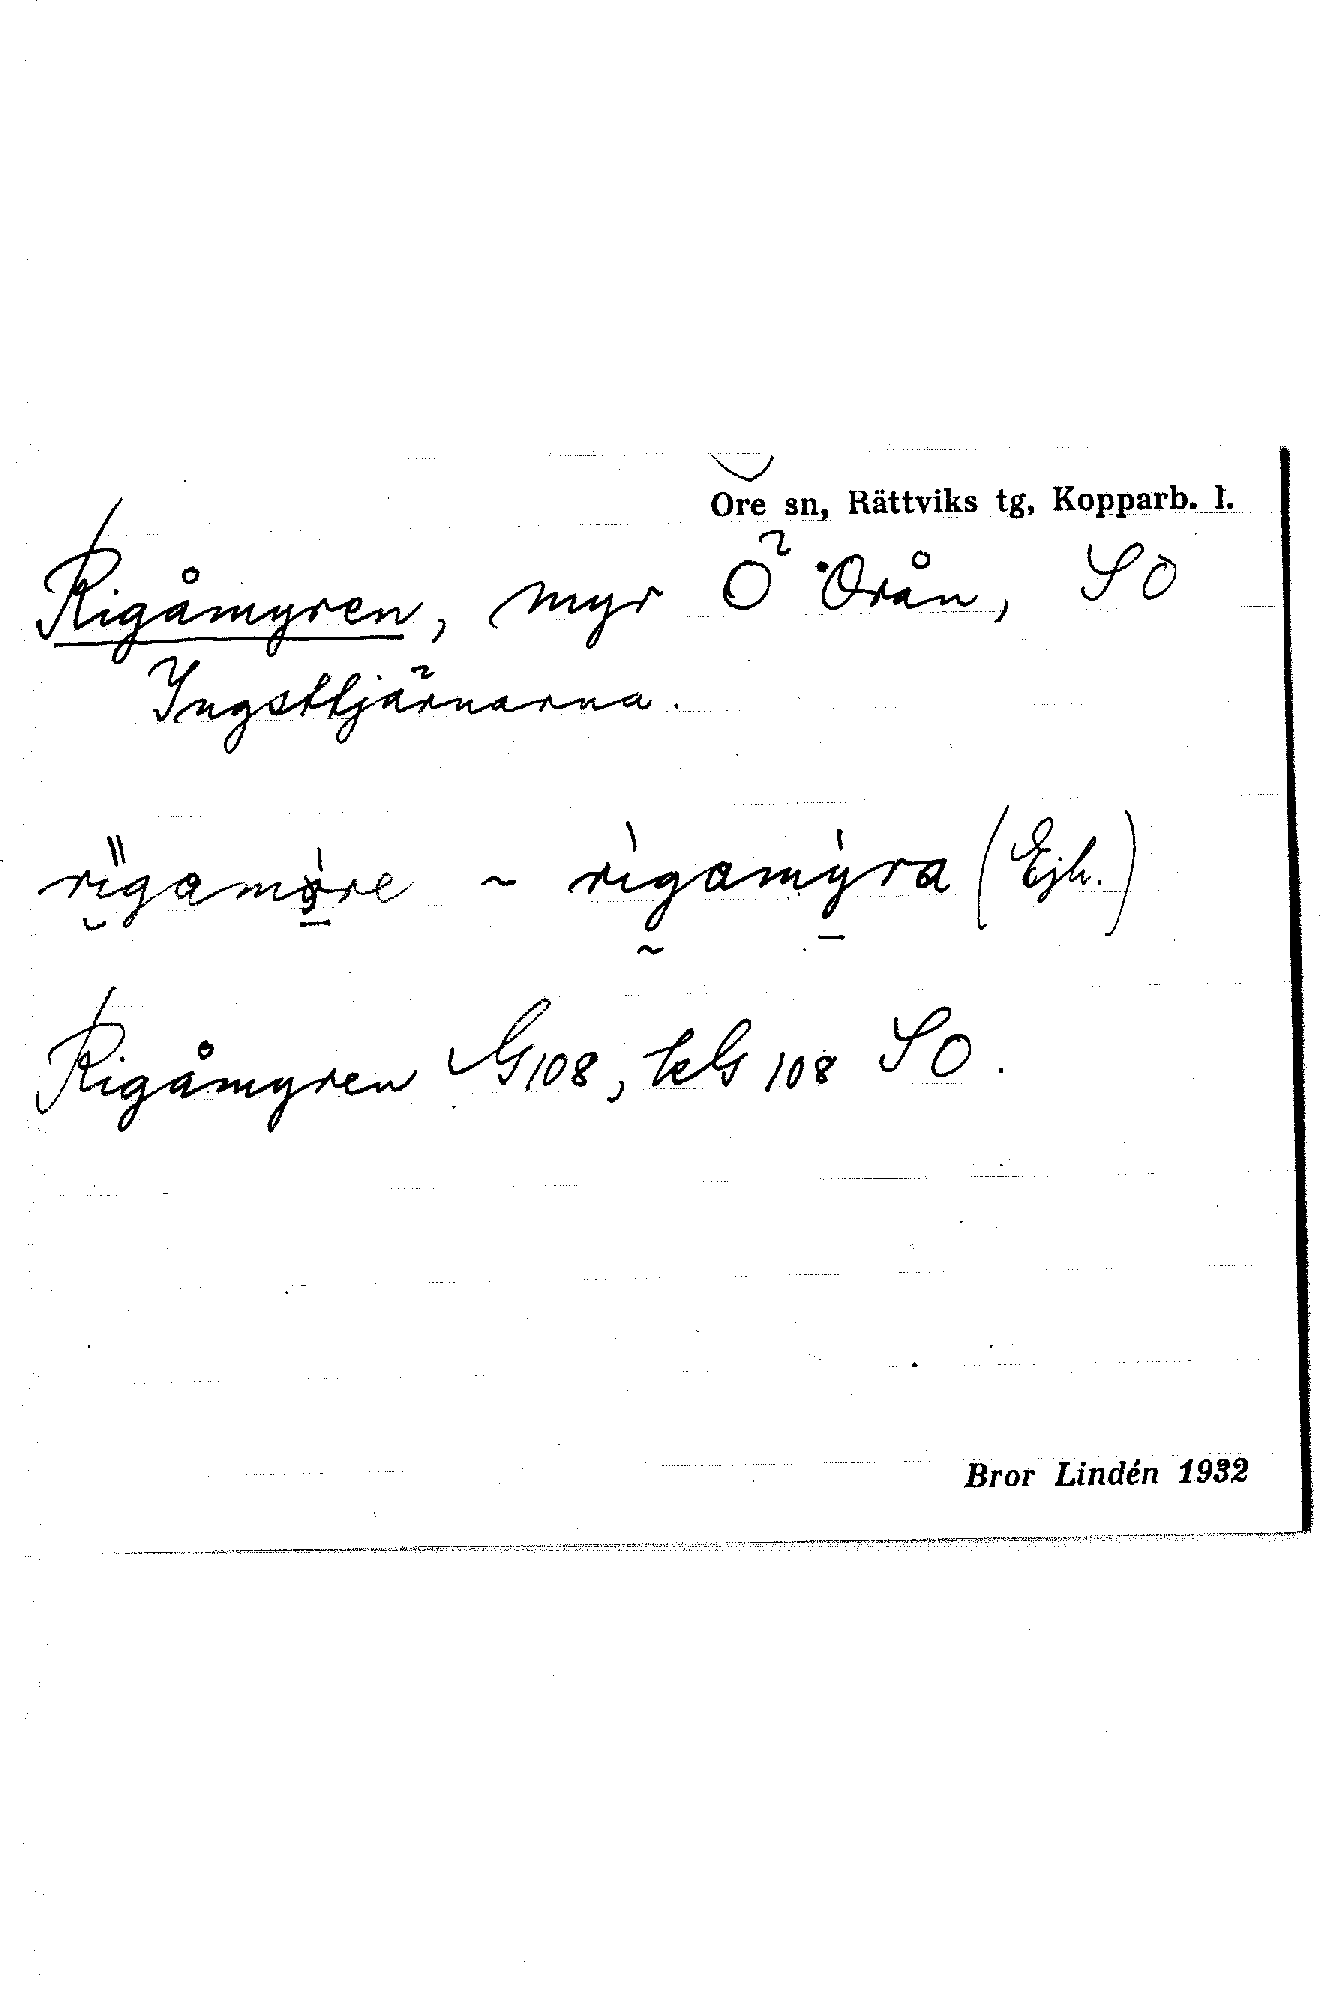 Ore sn, Rättviks tg, Kopparb. l.
Rigåmyren, myr Ö Orån, SO
Ingsttjärnarna.
rigamyre ~ rigamyra (Ejh.)
Rigåmyren G108, kG 108 SO.
Bror Lindén 1932